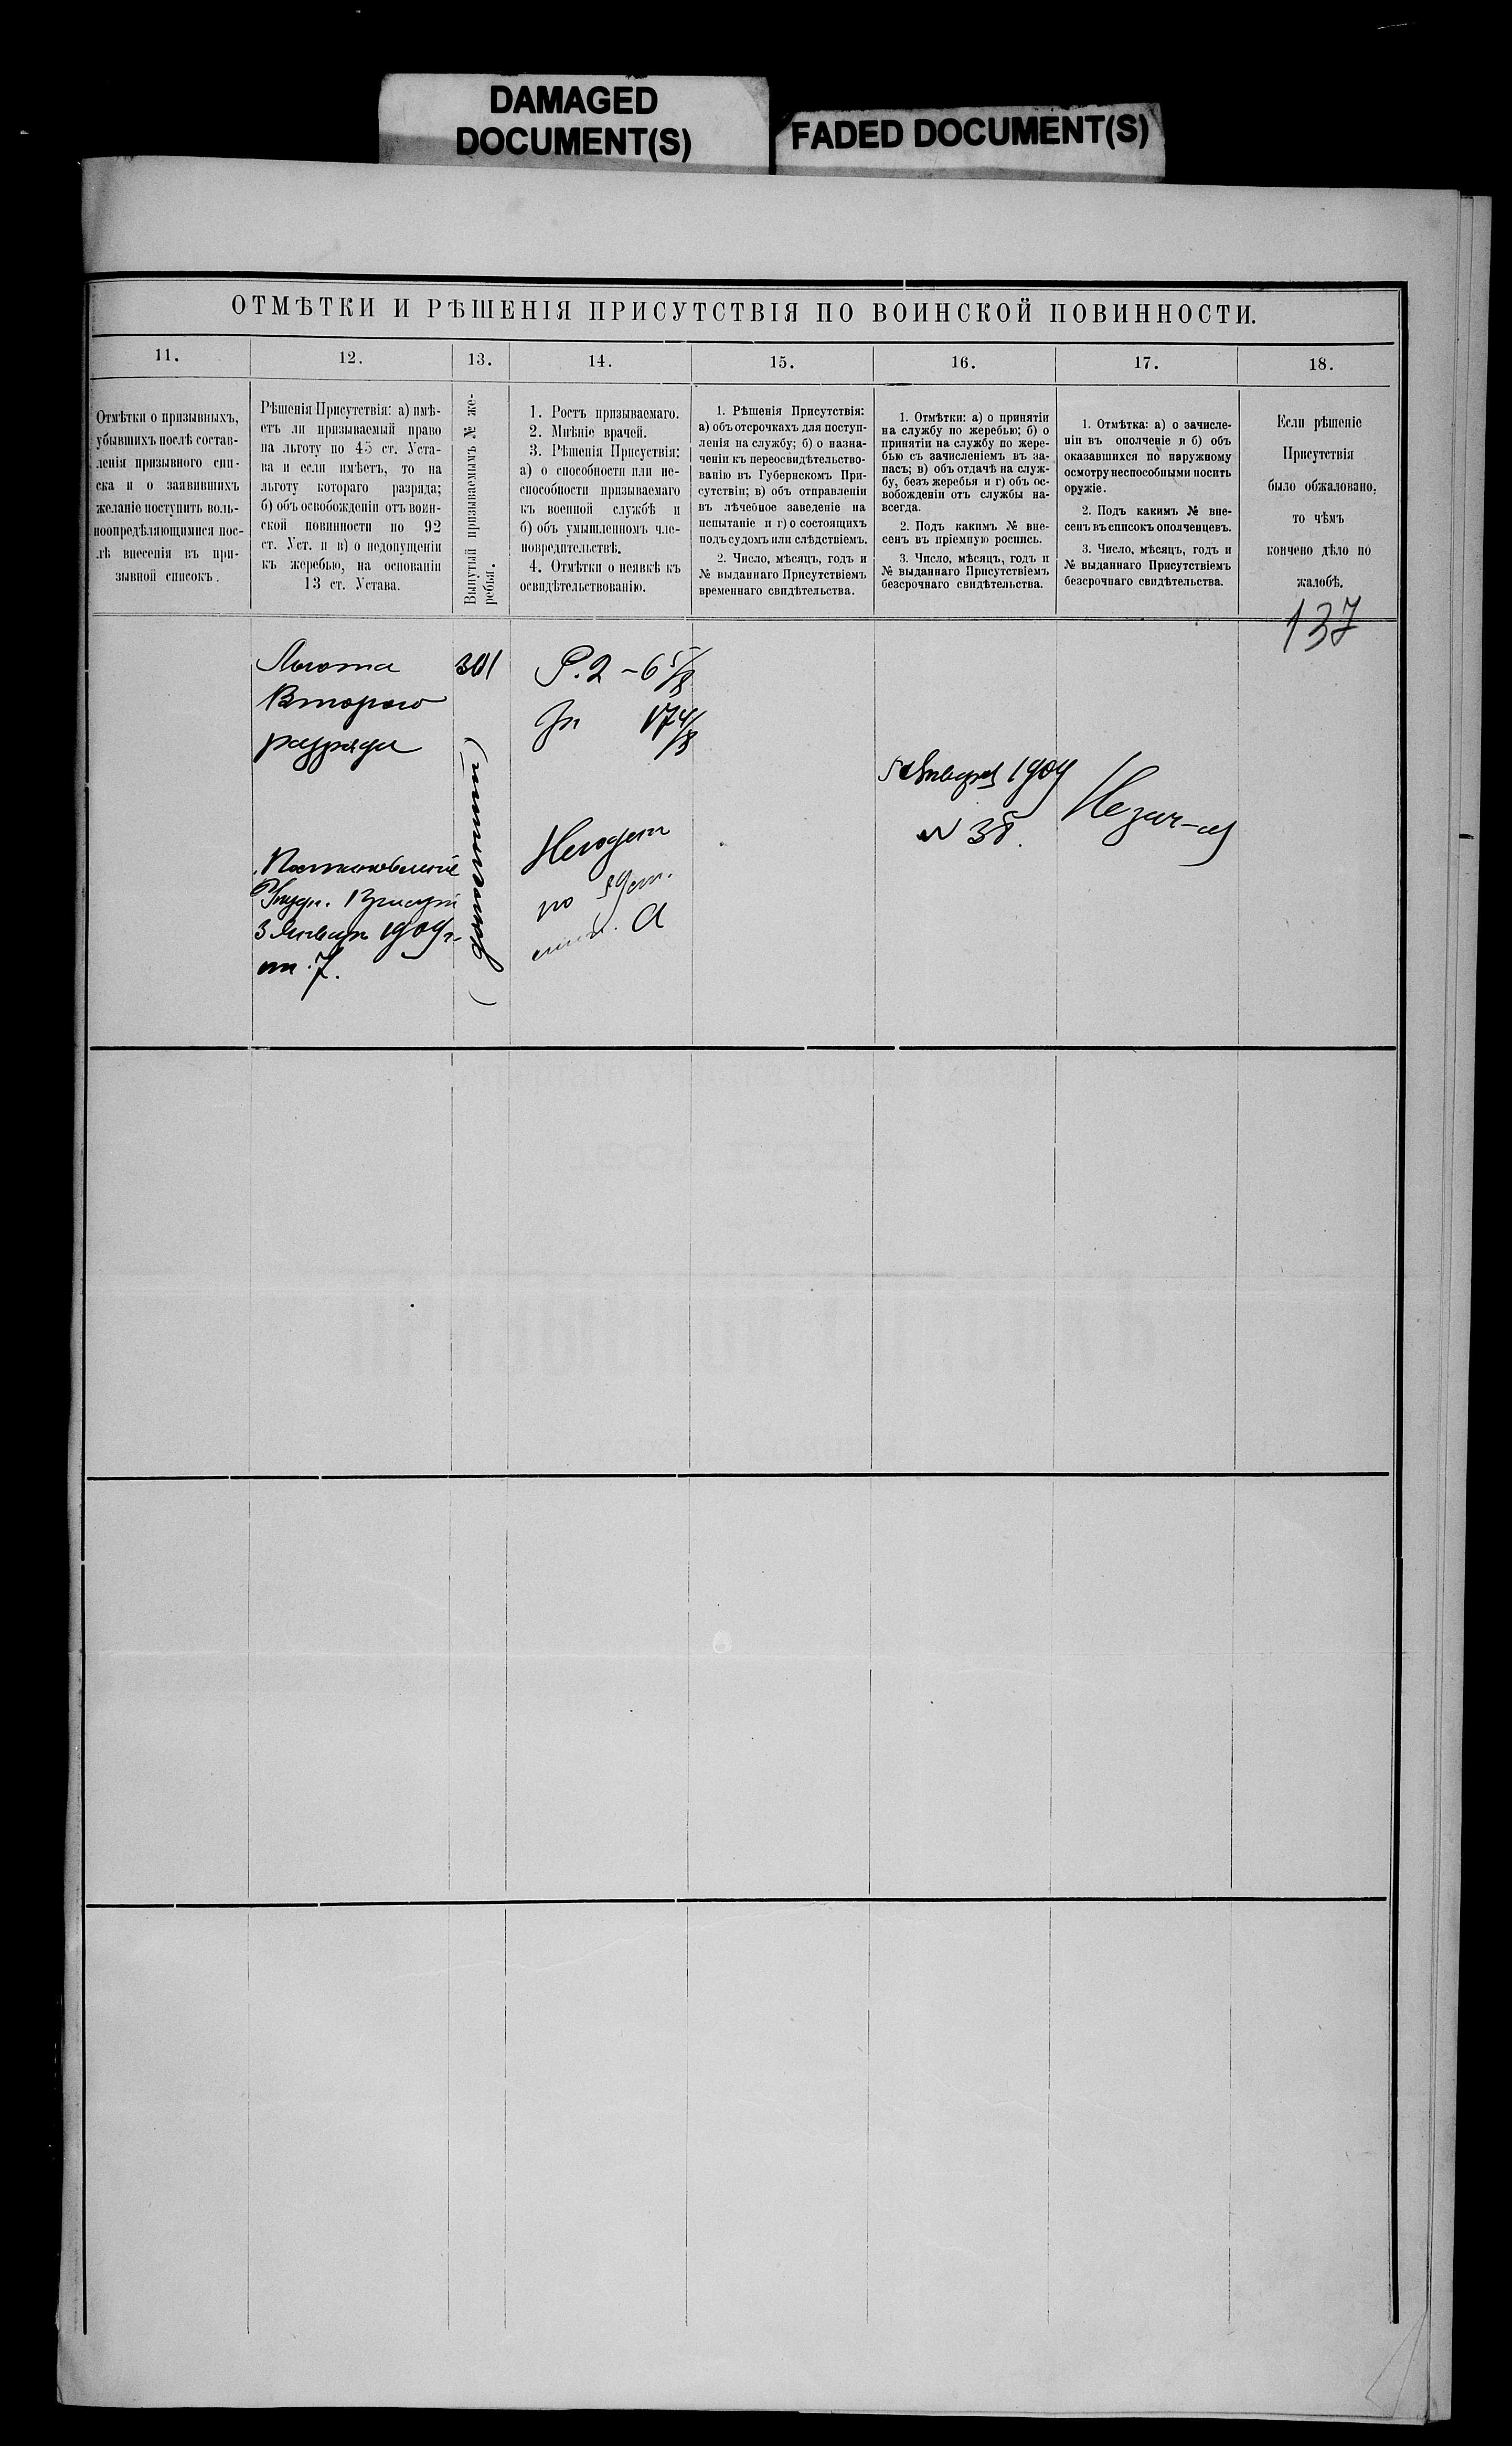 DAMAGED
DOCUMENT(S)
FADED DOCUMENT(S)
ОТМѢТКИ И РѢШЕНІЯ ПРИСУТСТВІЯ ПО ВОИНСКОЙ ПОВИННОСТИ.
11.
12.
13.
14.
15.
16.
17.
18.
Отмѣтки о призывныхъ,
убывшихъ послѣ состав-
ленія призывного спи-
ска и о заявившихъ
желаніе поступить воль-
ноопредѣляющимися пос-
лѣ внесенія въ при-
зывной списокъ.
Рѣшенія Присутствія: а) имѣ-
етъ ли призываемый право
на льготу по 45 ст. Уста-
ва и если имѣетъ, то на
льготу котораго разряда;
б) объ освобожденіи отъ воин-
ской повинности по 92
ст. Уст. и в) о недопущеніи
къ жеребью, на основаніи
13 ст. Устава.
Вынутый призываемымъ № же-
ребья.
1. Ростъ призываемаго.
2. Мнѣніе врачей.
3. Рѣшенія Присуствія:
а) о способности или не-
способности призываемаго
къ военной службѣ и
б) объ умышленномъ чле-
новредительствѣ.
4. Отмѣтки о неявкѣ къ
освидѣтельствованію.
1. Рѣшенія Присутствія:
а) объ отсрочкахъ для поступ-
ленія на службу; б) о назна-
ченіи къ переосвидѣтельство-
ванію въ Губернскомъ При-
сутствіи; в) объ отправленіи
въ лѣчебное заведеніе на
испытаніе и г) о состоящихъ
подъ судомъ или слѣдствіемъ.
2. Число, мѣсяцъ, годъ и
№ выданнаго Присутствіемъ
временнаго свидѣтельства.
1. Отмѣтки: а) о принятіи
на службу по жеребью; б) о
принятіи на службу по жере-
бью съ зачисленіемъ въ за-
пасъ; в) объ отдачѣ на служ-
бу, безъ жеребья и г) объ ос-
вобожденіи отъ службы на-
всегда.
2. Подъ какимъ № вне-
сенъ въ пріемную роспись.
3. Число, мѣсяцъ, годъ и
№ выданнаго Присутствіемъ
безсрочнаго свидѣтельства.
1. Отмѣтка: а) о зачисле-
ніи въ ополченіе и б) объ
оказавшихся по наружному
осмотру неспособными носить
оружіе.
2. Подъ какимъ № вне-
сенъ въ списокъ ополченцевъ.
3. Число, мѣсяцъ, годъ и
№ выданнаго Присутствіемъ
безсрочнаго свидѣтельства.
Если рѣшеніе
Присутствія
было обжаловано,
то чѣмъ
кончено дѣло по
жалобѣ.
137
Льгота
Второго
разряда
301
Р. 2 - 6 5/8
Гр 17 4/8
5 Января 1909
№ 38.
Незач-ся
Постановленіе
3 Января 1909 г.
ст. 7.
Негоденъ
по
А